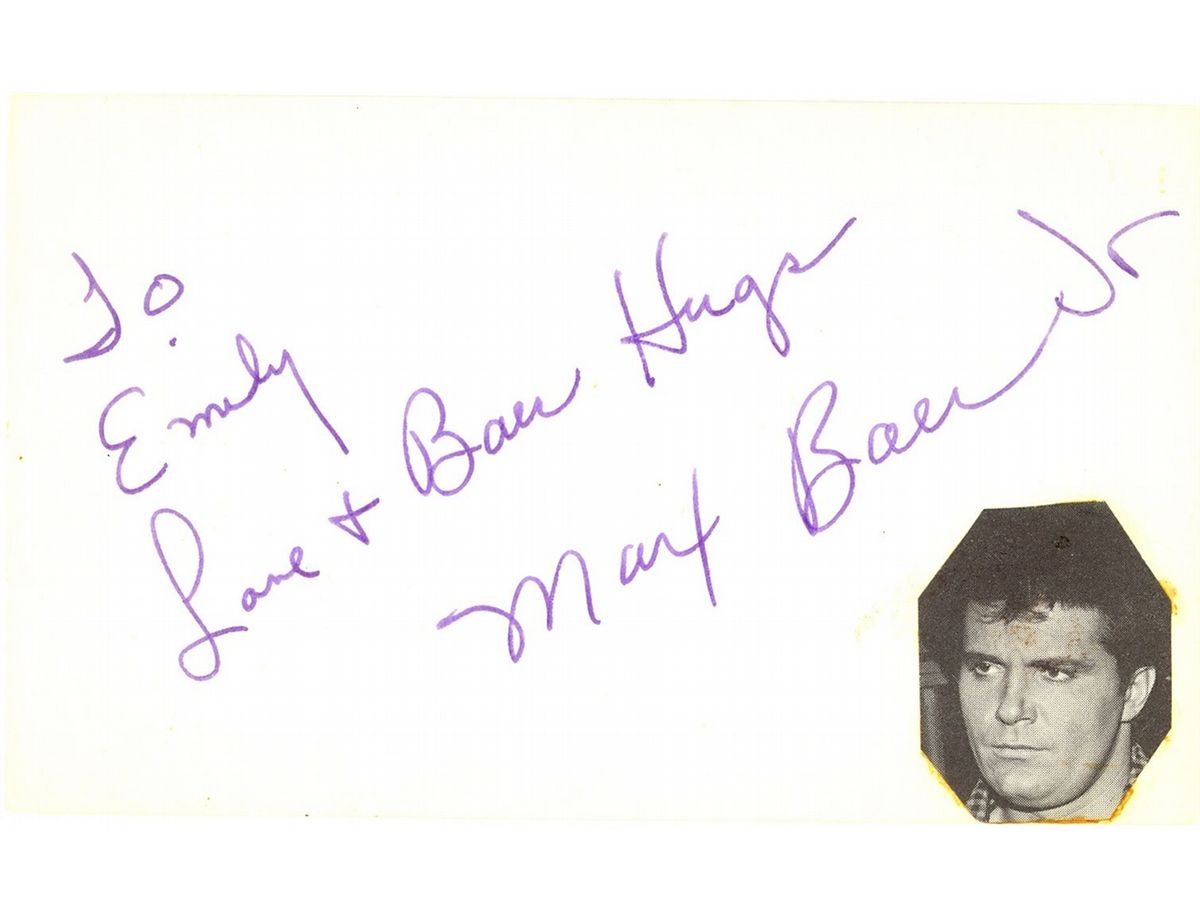 To
Emily
Love + Baer Hugs
Max Baer Jr